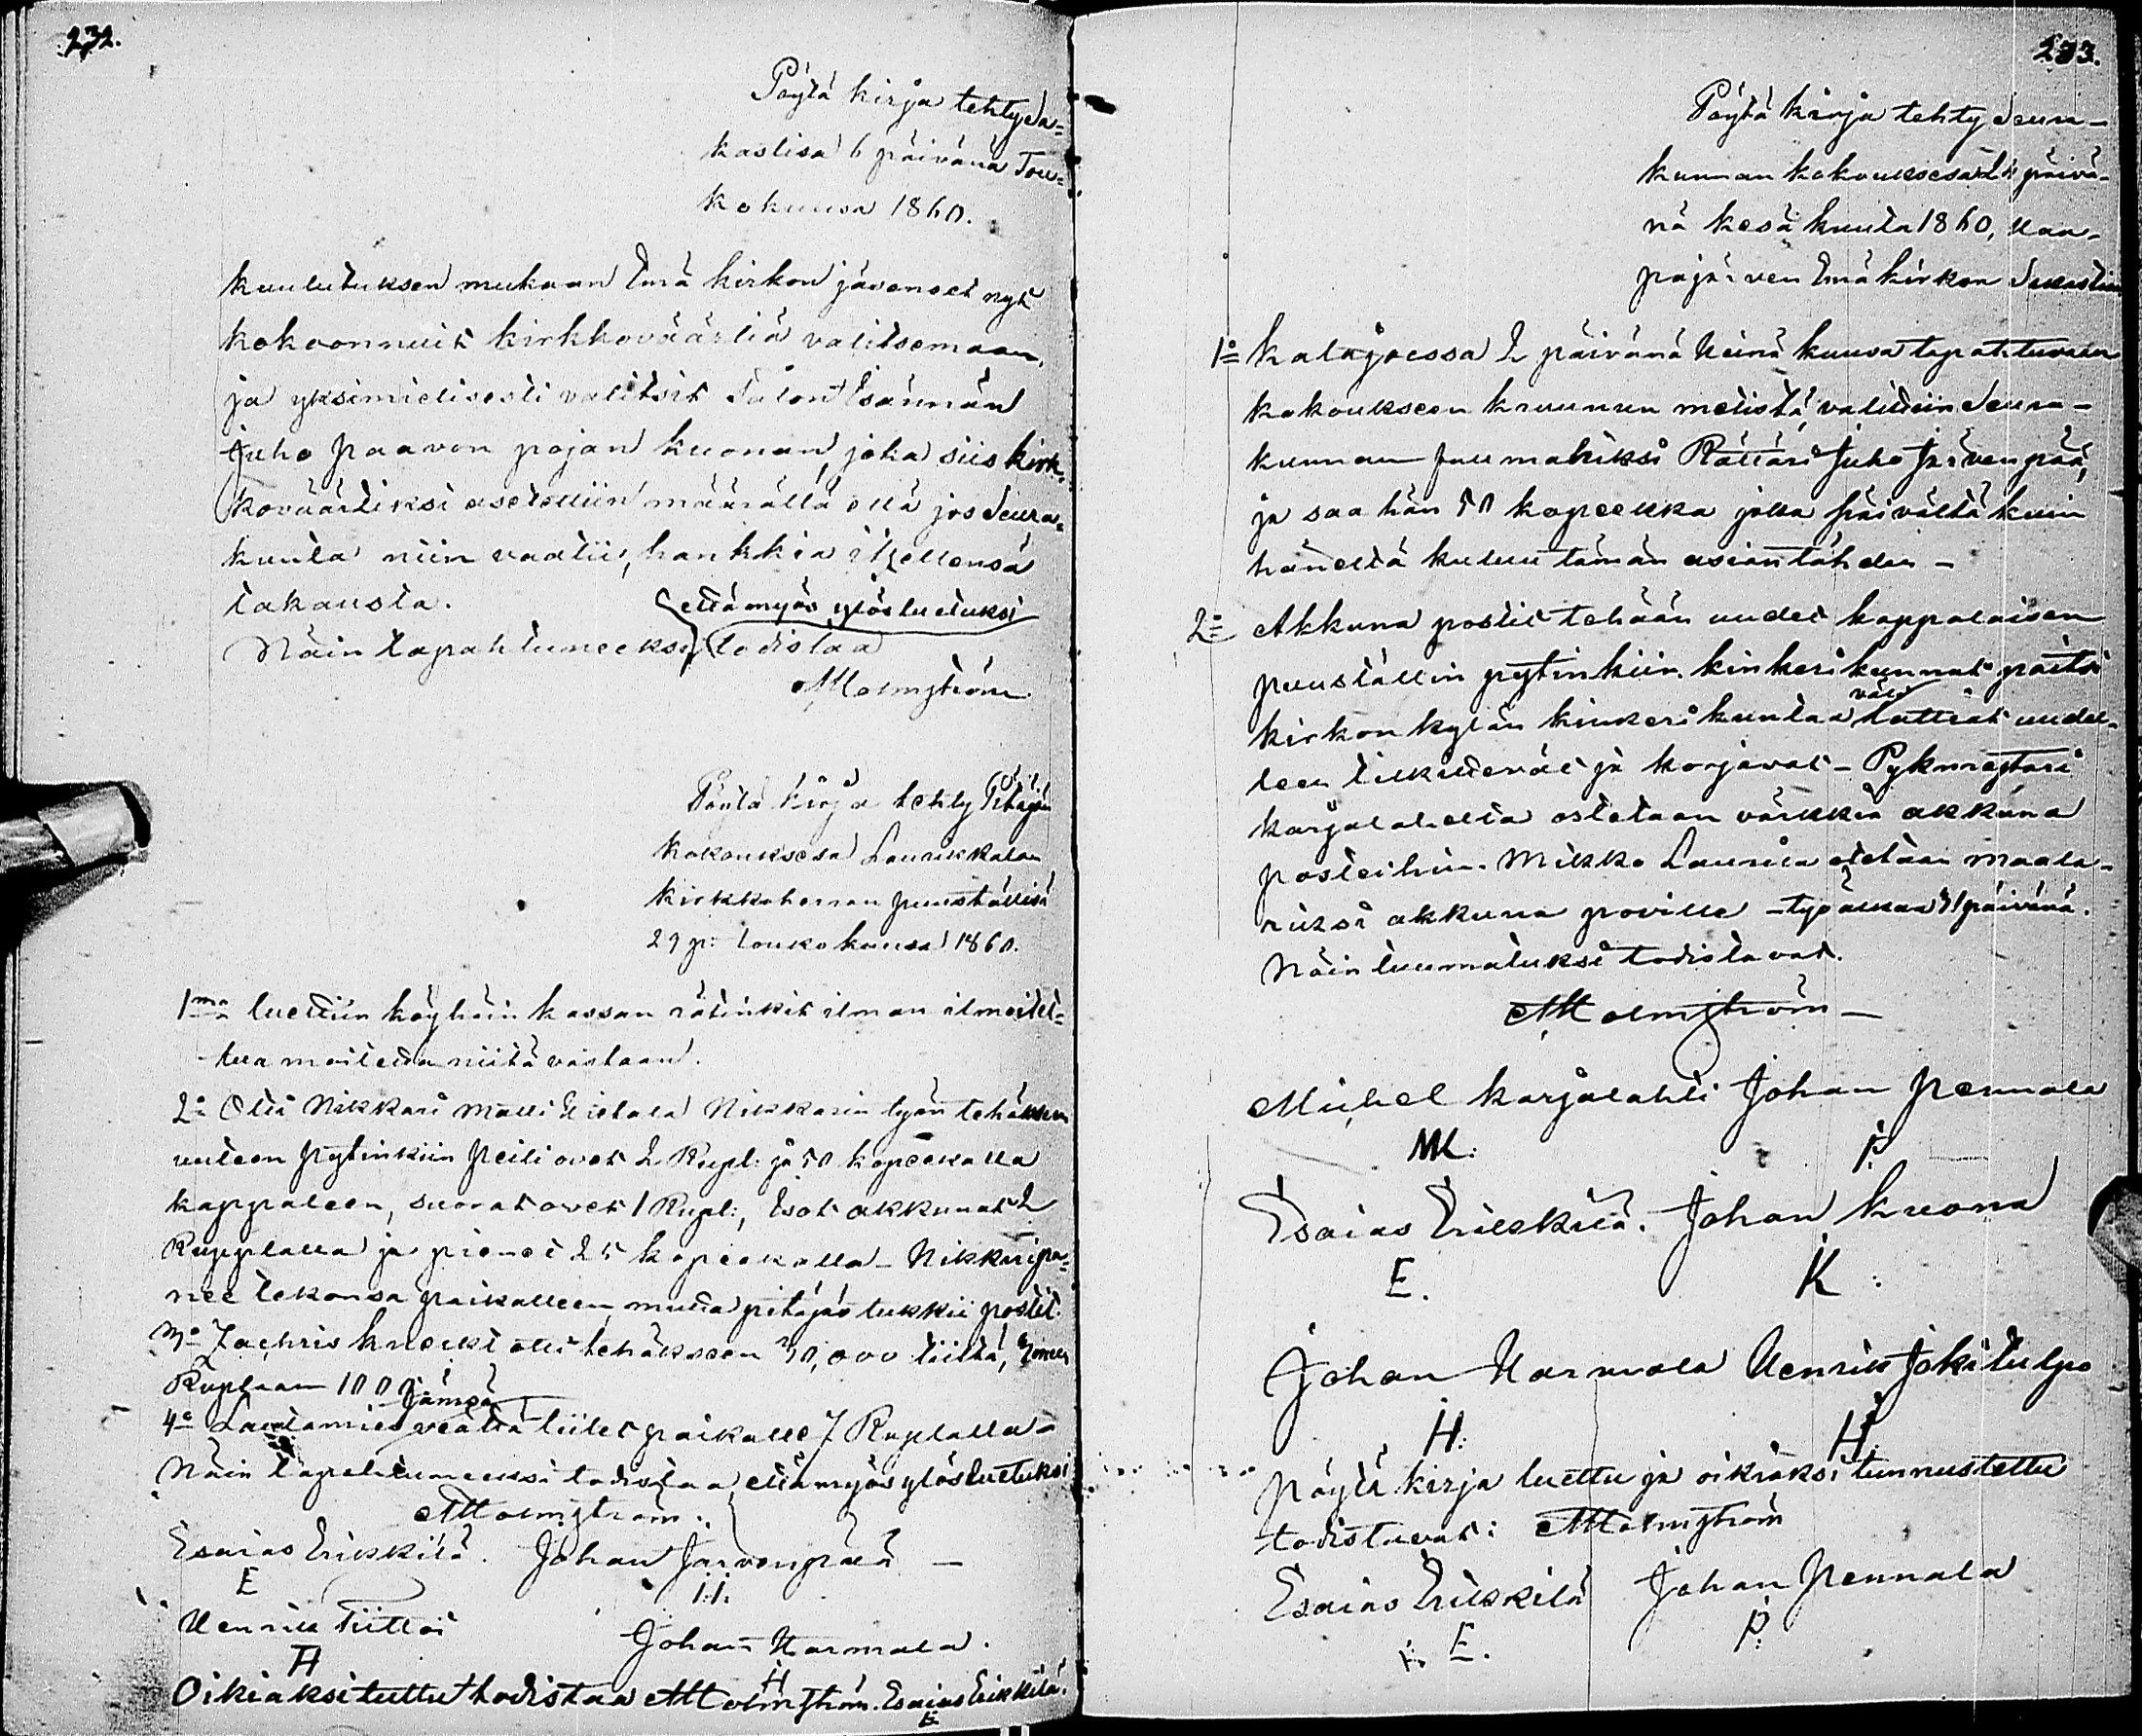 232.
Pöytä kirja tehty Sa=
kastisa 6 päivänä Tou=
kokuusa 1860.
kuulutuksen mukaan Emä kirkon jäsenet nyt
kokoonnuit kirkkoväärtiä valitsemaan,
ja yksimielisesti valitsit Talon Isännän
Juho Paavon pojan Kuonan, joka siis kirk=
koväärtiksi asetettiin määrällä että jos Seura=
kunta niin vaatii, hankkia itzellensä
takausta. että myös ylösluetuksi
Näin tapahtuneeksi todistaa
AMalmström.
Pöytä kirja tehty Pitäjän
kokouksesa Laurikkalan
kirkkoherran puuställisä
29 p: toukokuusa 1860.
1mo luettiin köyhäin kassan rätinkit ilman ilmoitet=
tua moitetta niitä vastaan.
2o Otti Nikkari Matti Hietala Nikkarin työn tehäksen
uuteen pytinkiin peili ovet 2 Rupl: ja 50 kopeekalla
kappaleen, suorat ovet 1 Rupl:, Isot akkunat 2
Rupplalla ja pienet 25 kopeekalla – Nikkari pa=
nee tekonsa paikalleen, mutta pitäjäs tukkii postit.
3o Zachris Knecki otti tehäkseen 30,000 tiiltä,
Ruplaan 1000.
Jämsä
4o Lautamies veätää tiilet paikalle 7 Ruplalla –
Näin tapahtuneeksi todistaa että myös ylösluetuksi
AMalmström.
Esaias Erikkilä. Johan Jarvenpää –
E I.I.
Henrik Tiittoi Johan Harmala.
H H
Oikiaksi tuttu todistaa AMalmström. Esaias Erikkilä.
E
233.
Pöytä kirja tehty Seura-
kunnan kokouksesa 24 päivä-
nä kesäkuuta 1860, Haa-
pajärven Emäkirkon Sakastisa
1o Kalajoessa 2 päivänä Heinä kuusa tapahtuvaan
kokoukseen kruunun metistä, valittiin Seura-
kunnan puumaliksi Rättäri Juho Järvenpää,
ja saa hän 50 kopeekka jolla päivältä kuin
häneltä kuluu tämän asian tähden –
2o Akkuna postit tehään uudet kappalaisen
puuställin pytinkiin. kinkerikunnat paitsi
väli
kirkon kylän kinkerikuntaa lattiat uudel-
leen tilkittevät ja korjavat – Pykmestari
Karjalahelta ostetaan värkkiä akkuna
posteihin. Mikko Laurila otetaan maala-
riksi akkuna poville – työ alkaa 31 päivänä.
Näin tuumatuksi todistavat.
AMalmström –
Michel Karjalahti Johan Pennala
MK: P.
Esaias Erikkilä. Johan Kuona
E. K:
Johan Harmala Henrik Jokitulpo
H: H.
Pöytä kirja luettu ja oikiaksi tunnustettu
todistavat: AMalmström
Esaias Erikkilä Johan Pennala
E. P.